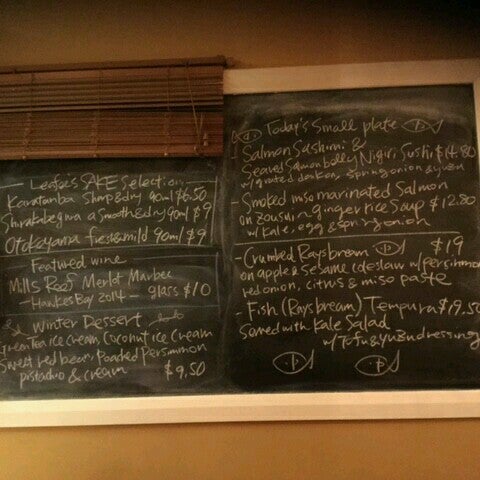 Leafe's SAKE Selection
Karatamba Sharp&dry 90ml $6.50
Shirakabegura a Smooth&dry 90ml $9
Otokoyama fresh&mild 90ml $9
Featured wine
Mills Reef Merlot Marbec
- Hawkes Bay 2014 - glass $10
Winter Dessert
Green Tea ice cream, Coconut ice Cream
Sweet red bean, Poached Persimmon
pistachio & cream $9.50
Today's Small plate
- Salmon Sashimi &
Seared Salmon belly Nigiri Sushi $14.80
w/ grated daikon, spring onion & yuzu
- Smoked miso marinated Salmon
on Zousui ~ ginger rice Soup $12.80
w/ Kale, egg & spring onion
- Crumbed Raysbream $19
on apple & Sesame coleslaw w/ persimmon
red onion, citrus & miso paste
- Fish (Raysbream) Tempura $19.50
Served with Kale Salad
w/ Tofu & yuzu dressing